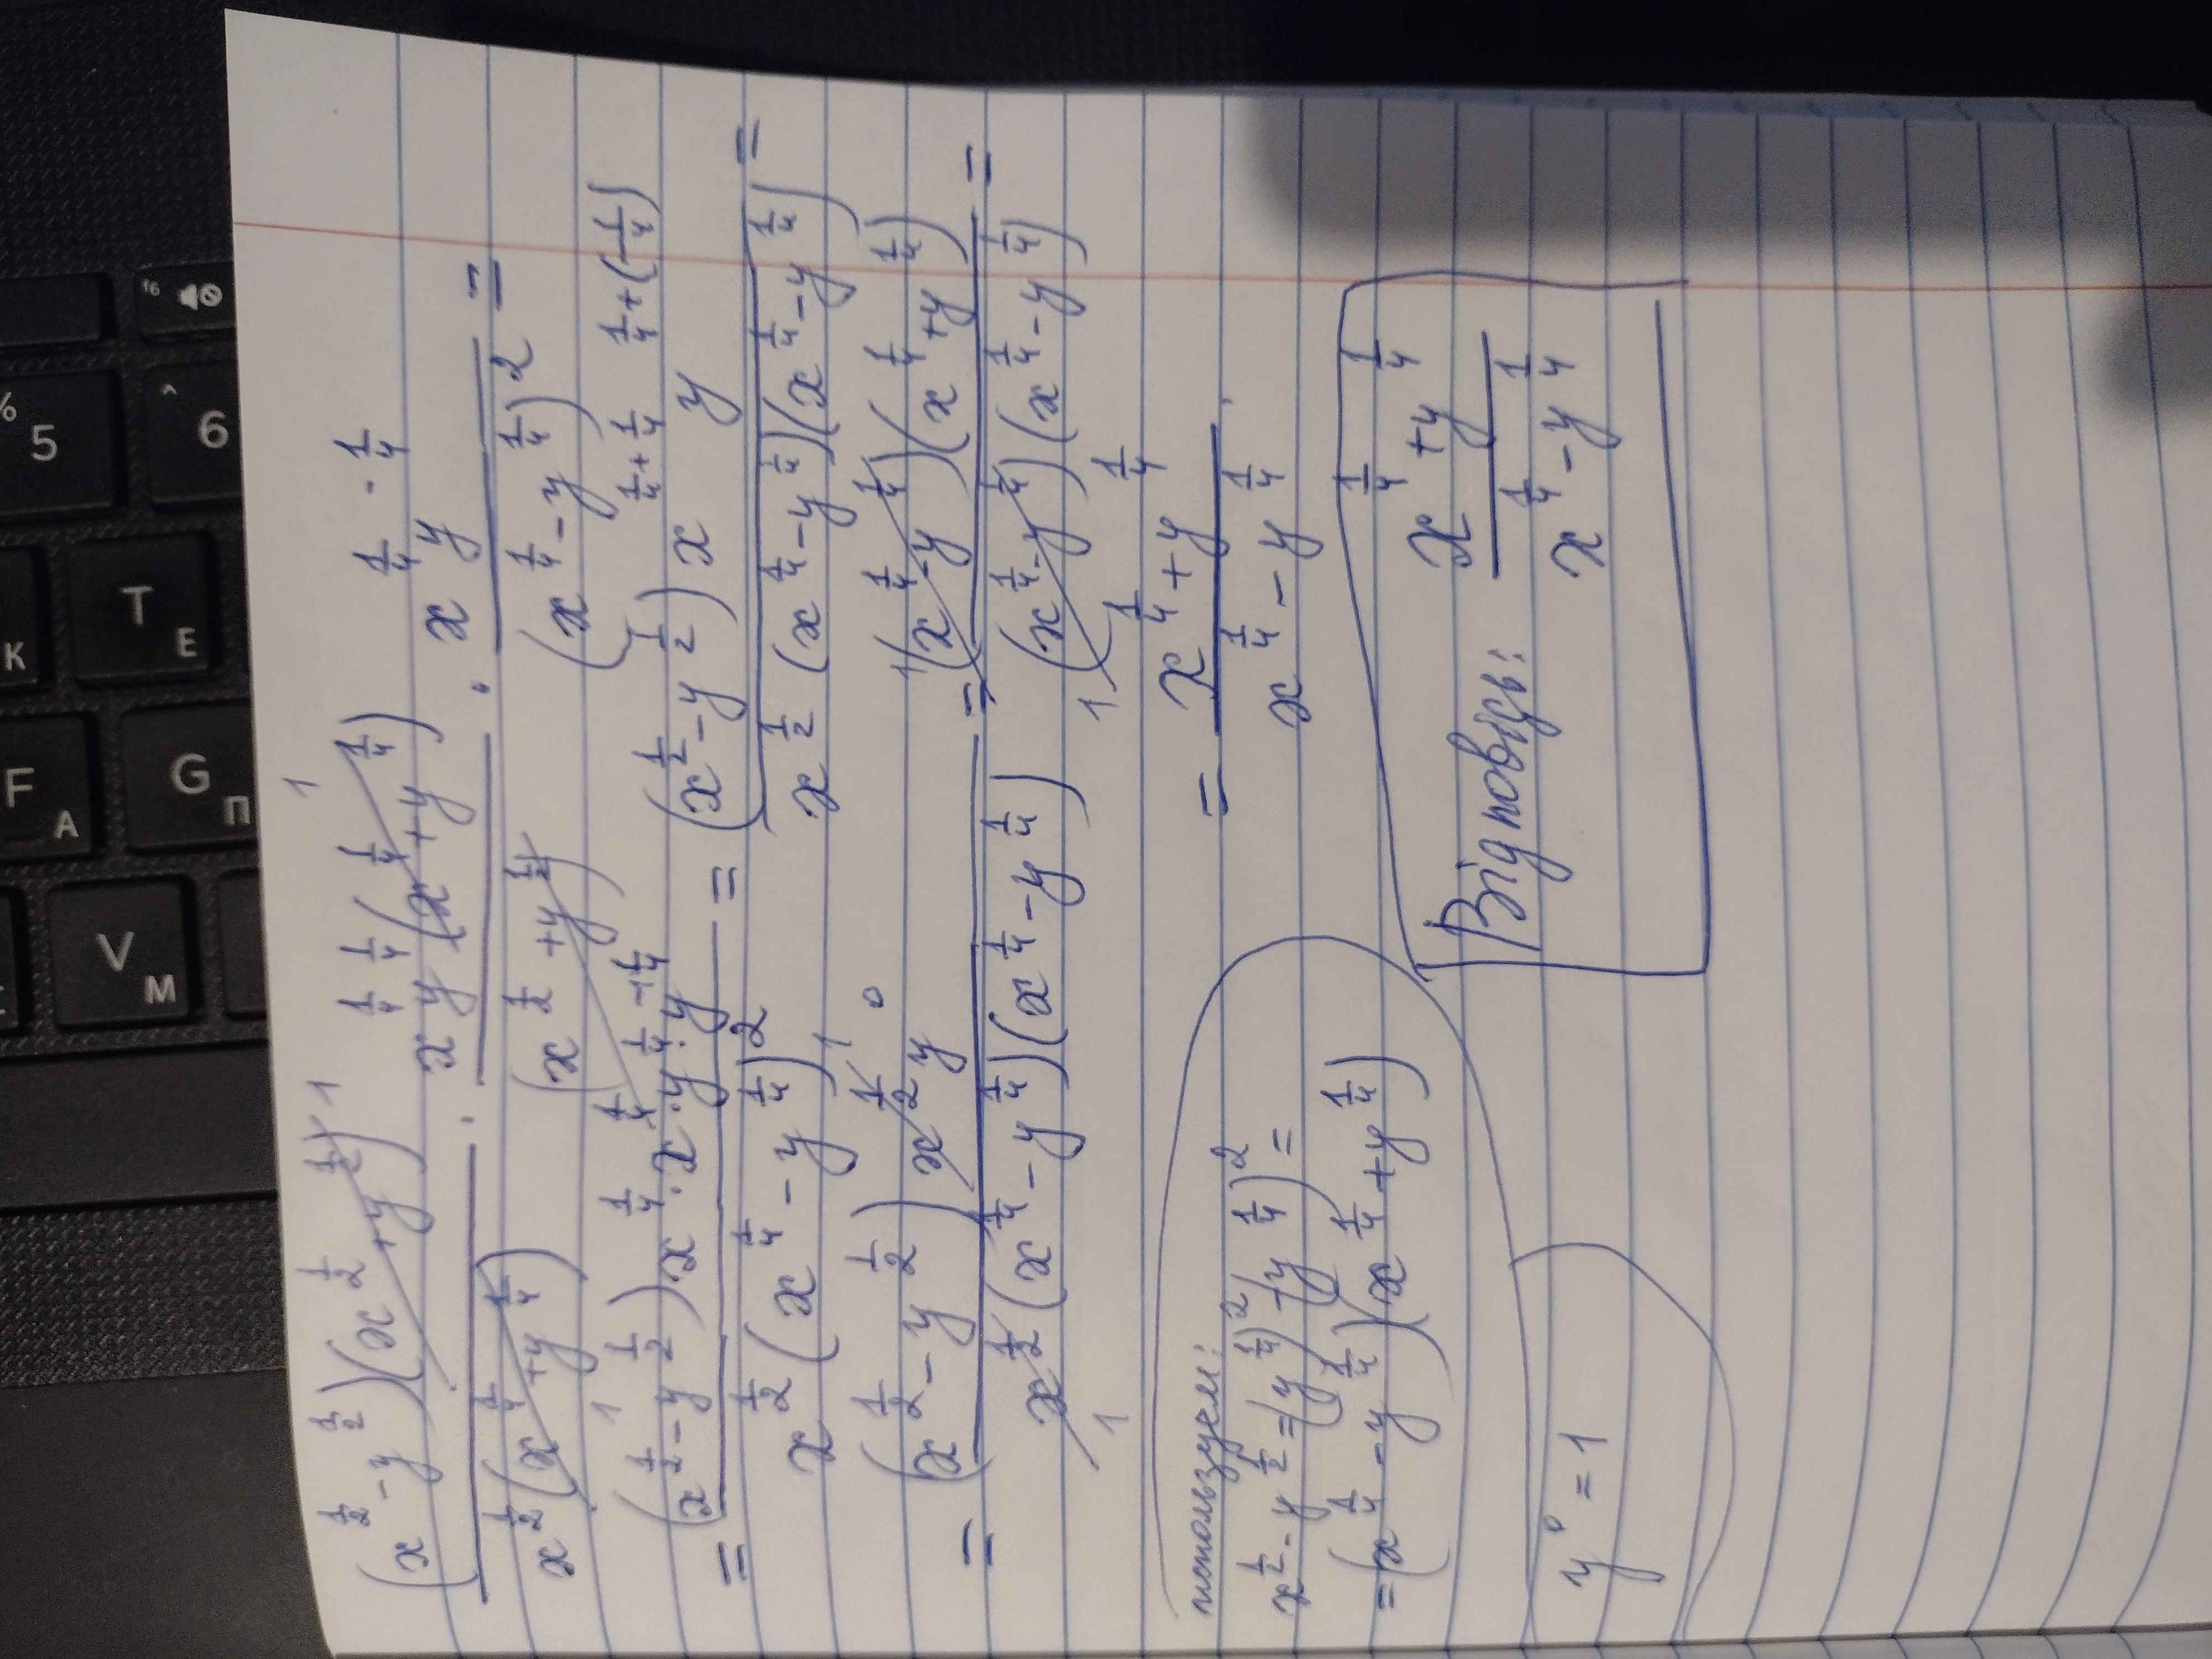 (x^{1/2} - y^{1/2})(x^{1/2} + y^{1/2}) 1 / x^{1/2}(x^{1/4} + y^{1/4}) 1 · x^{1/4} y^{1/4}(x^{1/4} + y^{1/4}) 1 / (x^{1/2} + y^{1/2}) · x^{1/4} y^{-1/4} / (x^{1/4} - y^{1/4})^2 =
= (x^{1/2} - y^{1/2}) · x^{1/4} · x^{1/4} · y^{1/4} · y^{-1/4} / x^{1/2}(x^{1/4} - y^{1/4})^2 = (x^{1/2} - y^{1/2}) x^{1/4+1/4} y^{1/4+(-1/4)} / x^{1/2}(x^{1/4} - y^{1/4})(x^{1/4} - y^{1/4}) =
= (x^{1/2} - y^{1/2}) x^{1/2} 1 y^0 / x^{1/2} 1 (x^{1/4} - y^{1/4})(x^{1/4} - y^{1/4}) = 1 (x^{1/4} - y^{1/4})(x^{1/4} + y^{1/4}) / 1 (x^{1/4} - y^{1/4})(x^{1/4} - y^{1/4}) =
= x^{1/4} + y^{1/4} / x^{1/4} - y^{1/4}
используем:
x^{1/2} - y^{1/2} = (y^{1/4})^2 - (y^{1/4})^2 =
= (x^{1/4} - y^{1/4})(x^{1/4} + y^{1/4})
y^0 = 1
Відповідь: x^{1/4} + y^{1/4} / x^{1/4} - y^{1/4}
5
%
6
^
F6
K
T
E
F
A
G
П
V
M